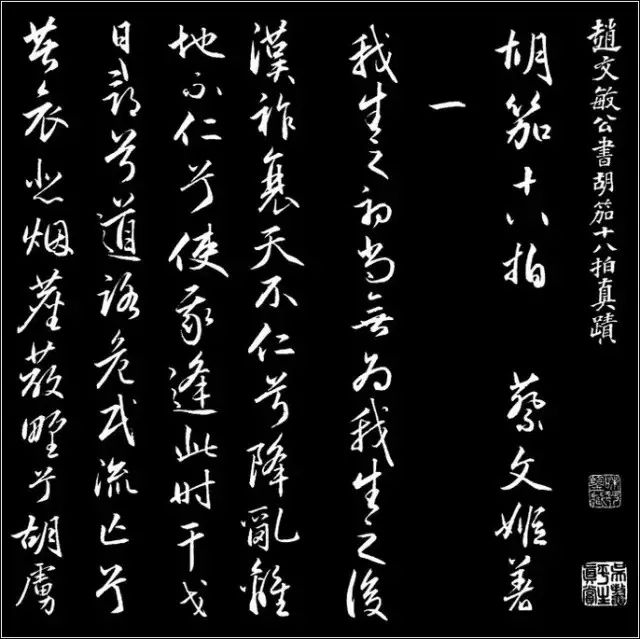 趙文敏公書胡笳十八拍真蹟
胡笳十八拍 蔡文姬著
一
我生之初尚無為我生之後
漢祚衰天不仁兮降亂離
地不仁兮使我逢此時干戈
日尋兮道路危民流亡兮
共哀悲烟塵蔽野兮胡虜